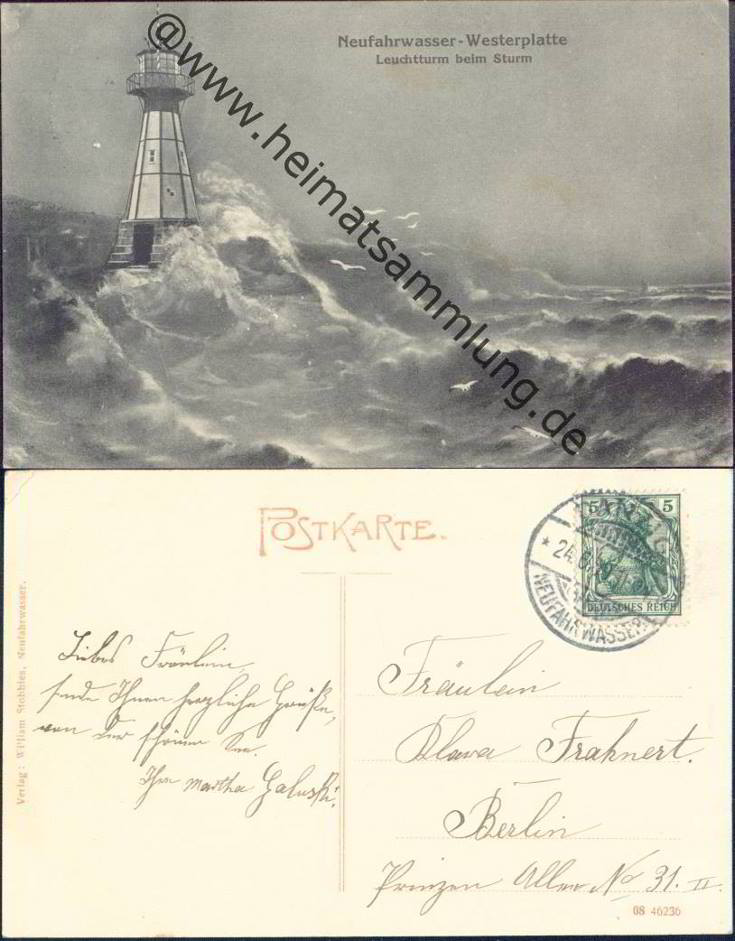 Neufahrwasser-Westerplatte
Leuchtturm beim Sturm
@www.heimatsammlung.de
POSTKARTE.
5 5
DEUTSCHES REICH
DANZIG
* 24.
NEUFAHRWASSER
Verlag: William Stobbies, Neufahrwasser.
Liebes Fräulein,
sende Ihnen herzliche Grüße,
von der schönen See.
Ihre Martha Galuski.
Fräulein
Klara Frahnert.
Berlin
Prinzen Allee No 31. II.
08 46236